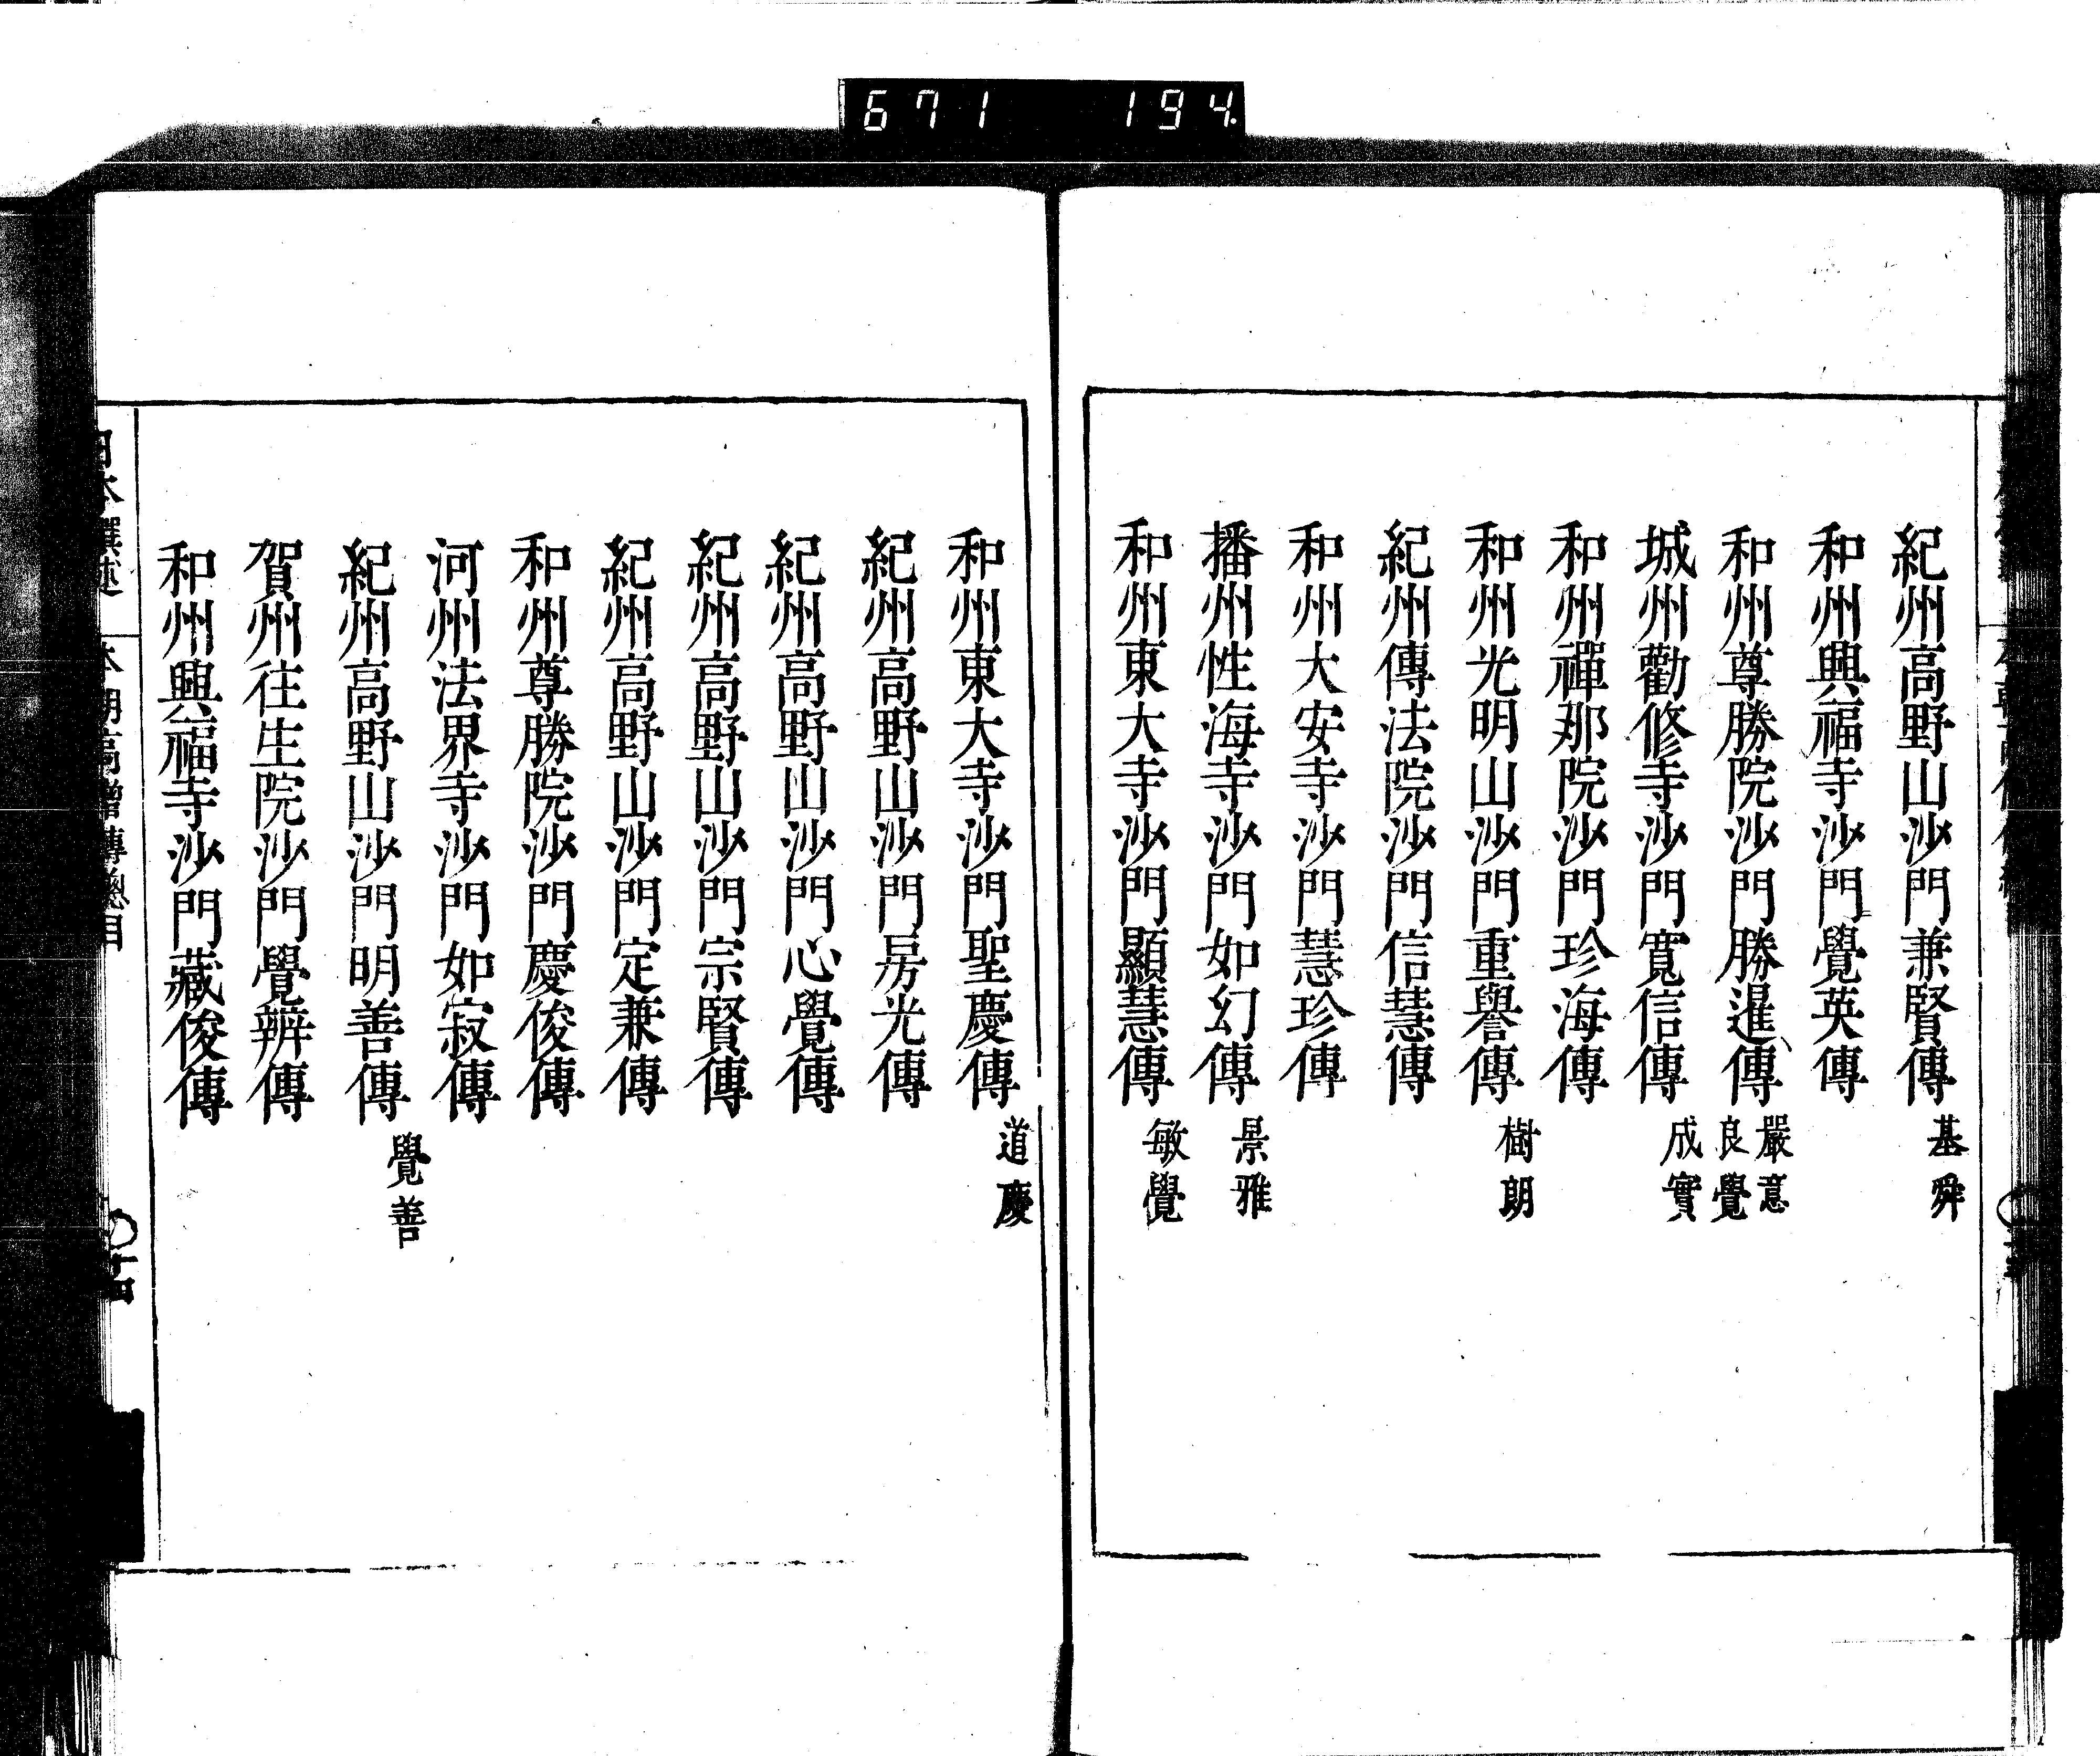 671 194
紀州高野山沙門兼賢傳 基舜
和州興福寺沙門覺英傳
和州尊勝院沙門勝暹傳 嚴意 良覺
城州勸修寺沙門寬信傳 成實
和州禪那院沙門珍海傳
和州光明山沙門重譽傳 樹朗
紀州傳法院沙門信慧傳
和州大安寺沙門慧珍傳
播州性海寺沙門如幻傳 景雅
和州東大寺沙門顯慧傳 敏覺
和州東大寺沙門聖慶傳 道慶
紀州高野山沙門房光傳
紀州高野山沙門心覺傳
紀州高野山沙門宗賢傳
紀州高野山沙門定兼傳
和州尊勝院沙門慶俊傳
河州法界寺沙門如寂傳
紀州高野山沙門明善傳 覺善
賀州往生院沙門覺辨傳
和州興福寺沙門藏俊傳
日本撰述 本朝高僧傳總目 十四